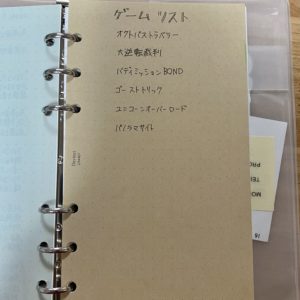 ゲームリスト
オクトパストラベラー
大逆転裁判
バディミッションBOND
ゴーストトリック
ユニコーンオーバーロード
パノラマサイト